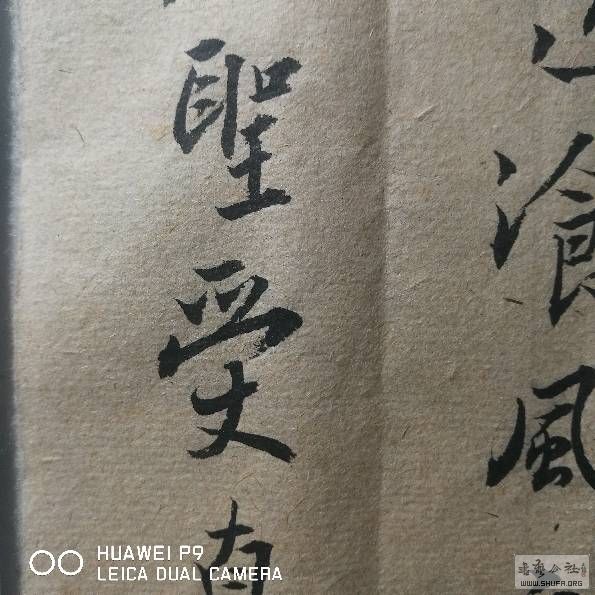 飡風
聖受
HUAWEI P9
LEICA DUAL CAMERA
WWW.SHUFA.ORG